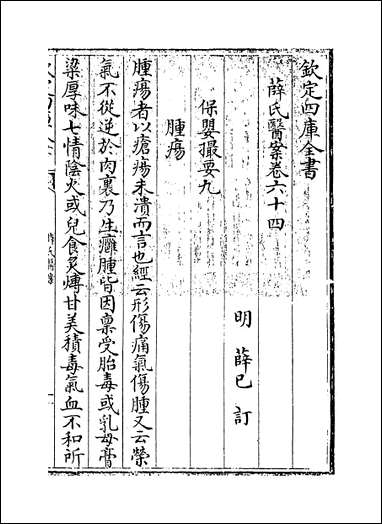 欽定四庫全書
薛氏醫案卷六十四
明 薛己 訂
保嬰撮要九
腫瘍
腫瘍者以瘡瘍未潰而言也經云形傷痛氣傷腫又云榮
氣不從逆於肉裏乃生癰腫皆因禀受胎毒或乳母膏
粱厚味七情陰火或兒食炙煿甘美積毒氣血不和所